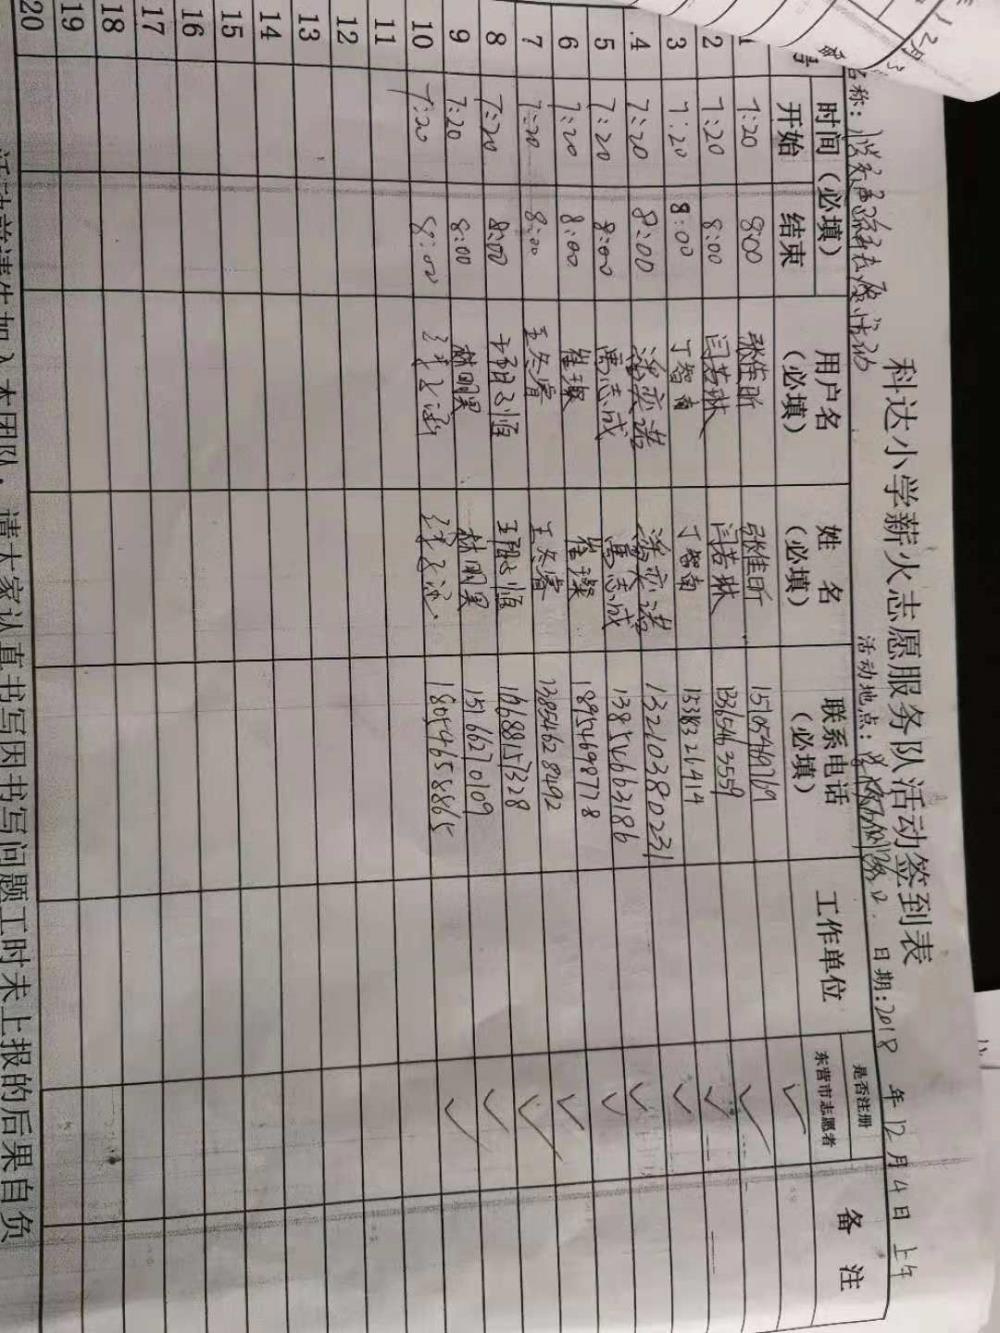 科达小学薪火志愿服务队活动签到表
名称：
活动地点：
日期：2018 年 12 月 4 日 上午
时间（必填） 用户名（必填） 姓 名（必填） 联系电话（必填） 工作单位 是否注册东营市志愿者 备 注
开始 结束
1 7:20 8:00 张佳昕 张佳昕 ✓
2 7:20 8:00 闫若琳 闫若琳 13365463559 ✓
3 7:20 8:00 丁智南 丁智南 ✓
4 7:20 8:00 潘奕诺 潘奕诺 13210380231 ✓
5 7:20 8:00 禹志成 禹志成 ✓
6 7:20 8:00 崔璨 崔璨 18954698778 ✓
7 7:20 8:00 王冬睿 王冬睿 13854628492 ✓
8 7:20 8:00 ✓
9 7:20 8:00 林明昊 林明昊 15166270109 ✓
10 7:20 8:00 18054658865 ✓
11
12
13
14
15
16
17
18
19
20
活动前请先加入本团队，请大家认真书写因书写问题工时未上报的后果自负